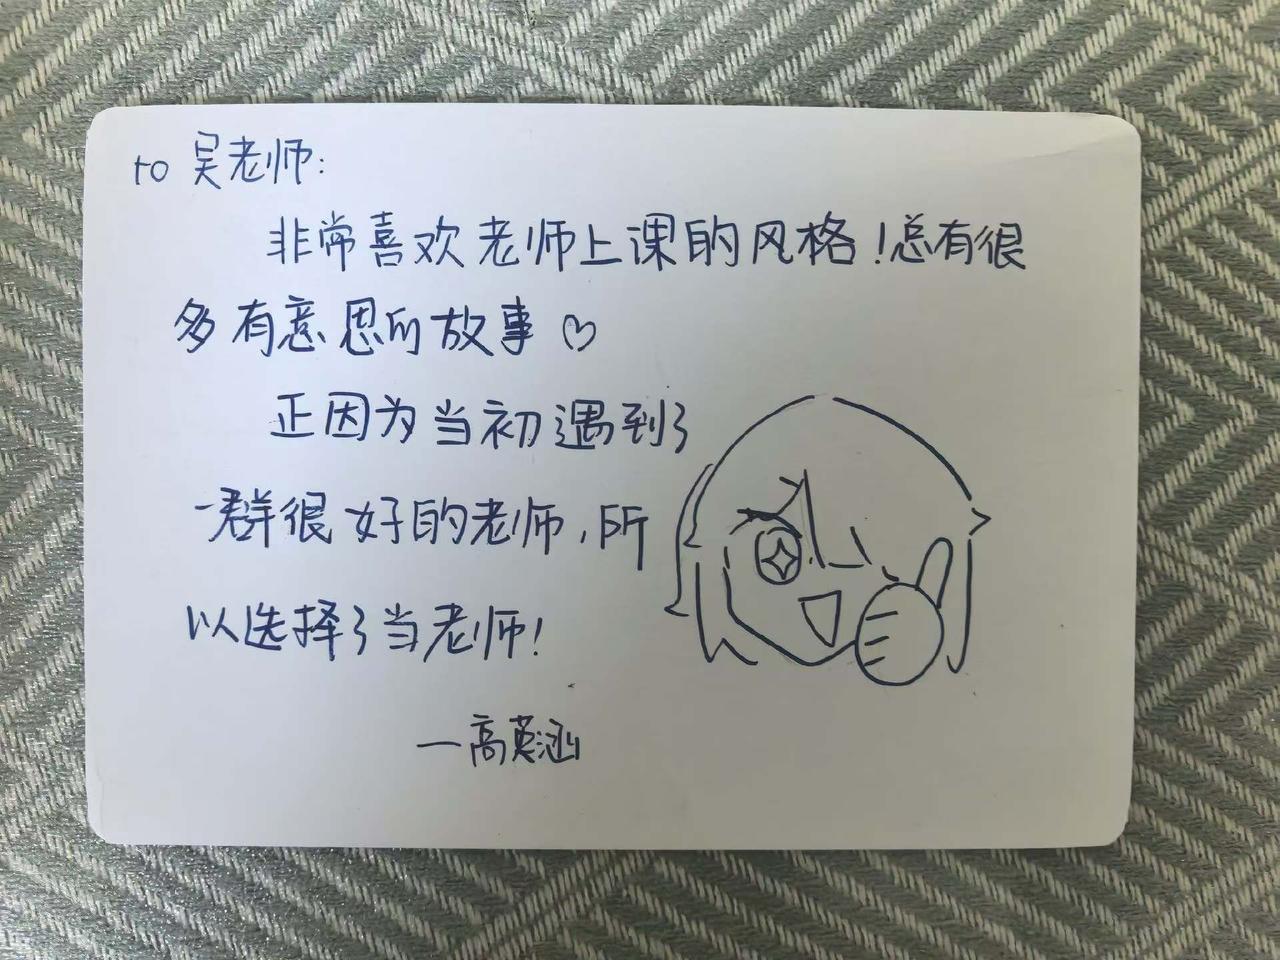 to 吴老师:
非常喜欢老师上课的风格!总有很
多有意思的故事♡
正因为当初遇到了
一群很好的老师,所
以选择了当老师!
—高英涵